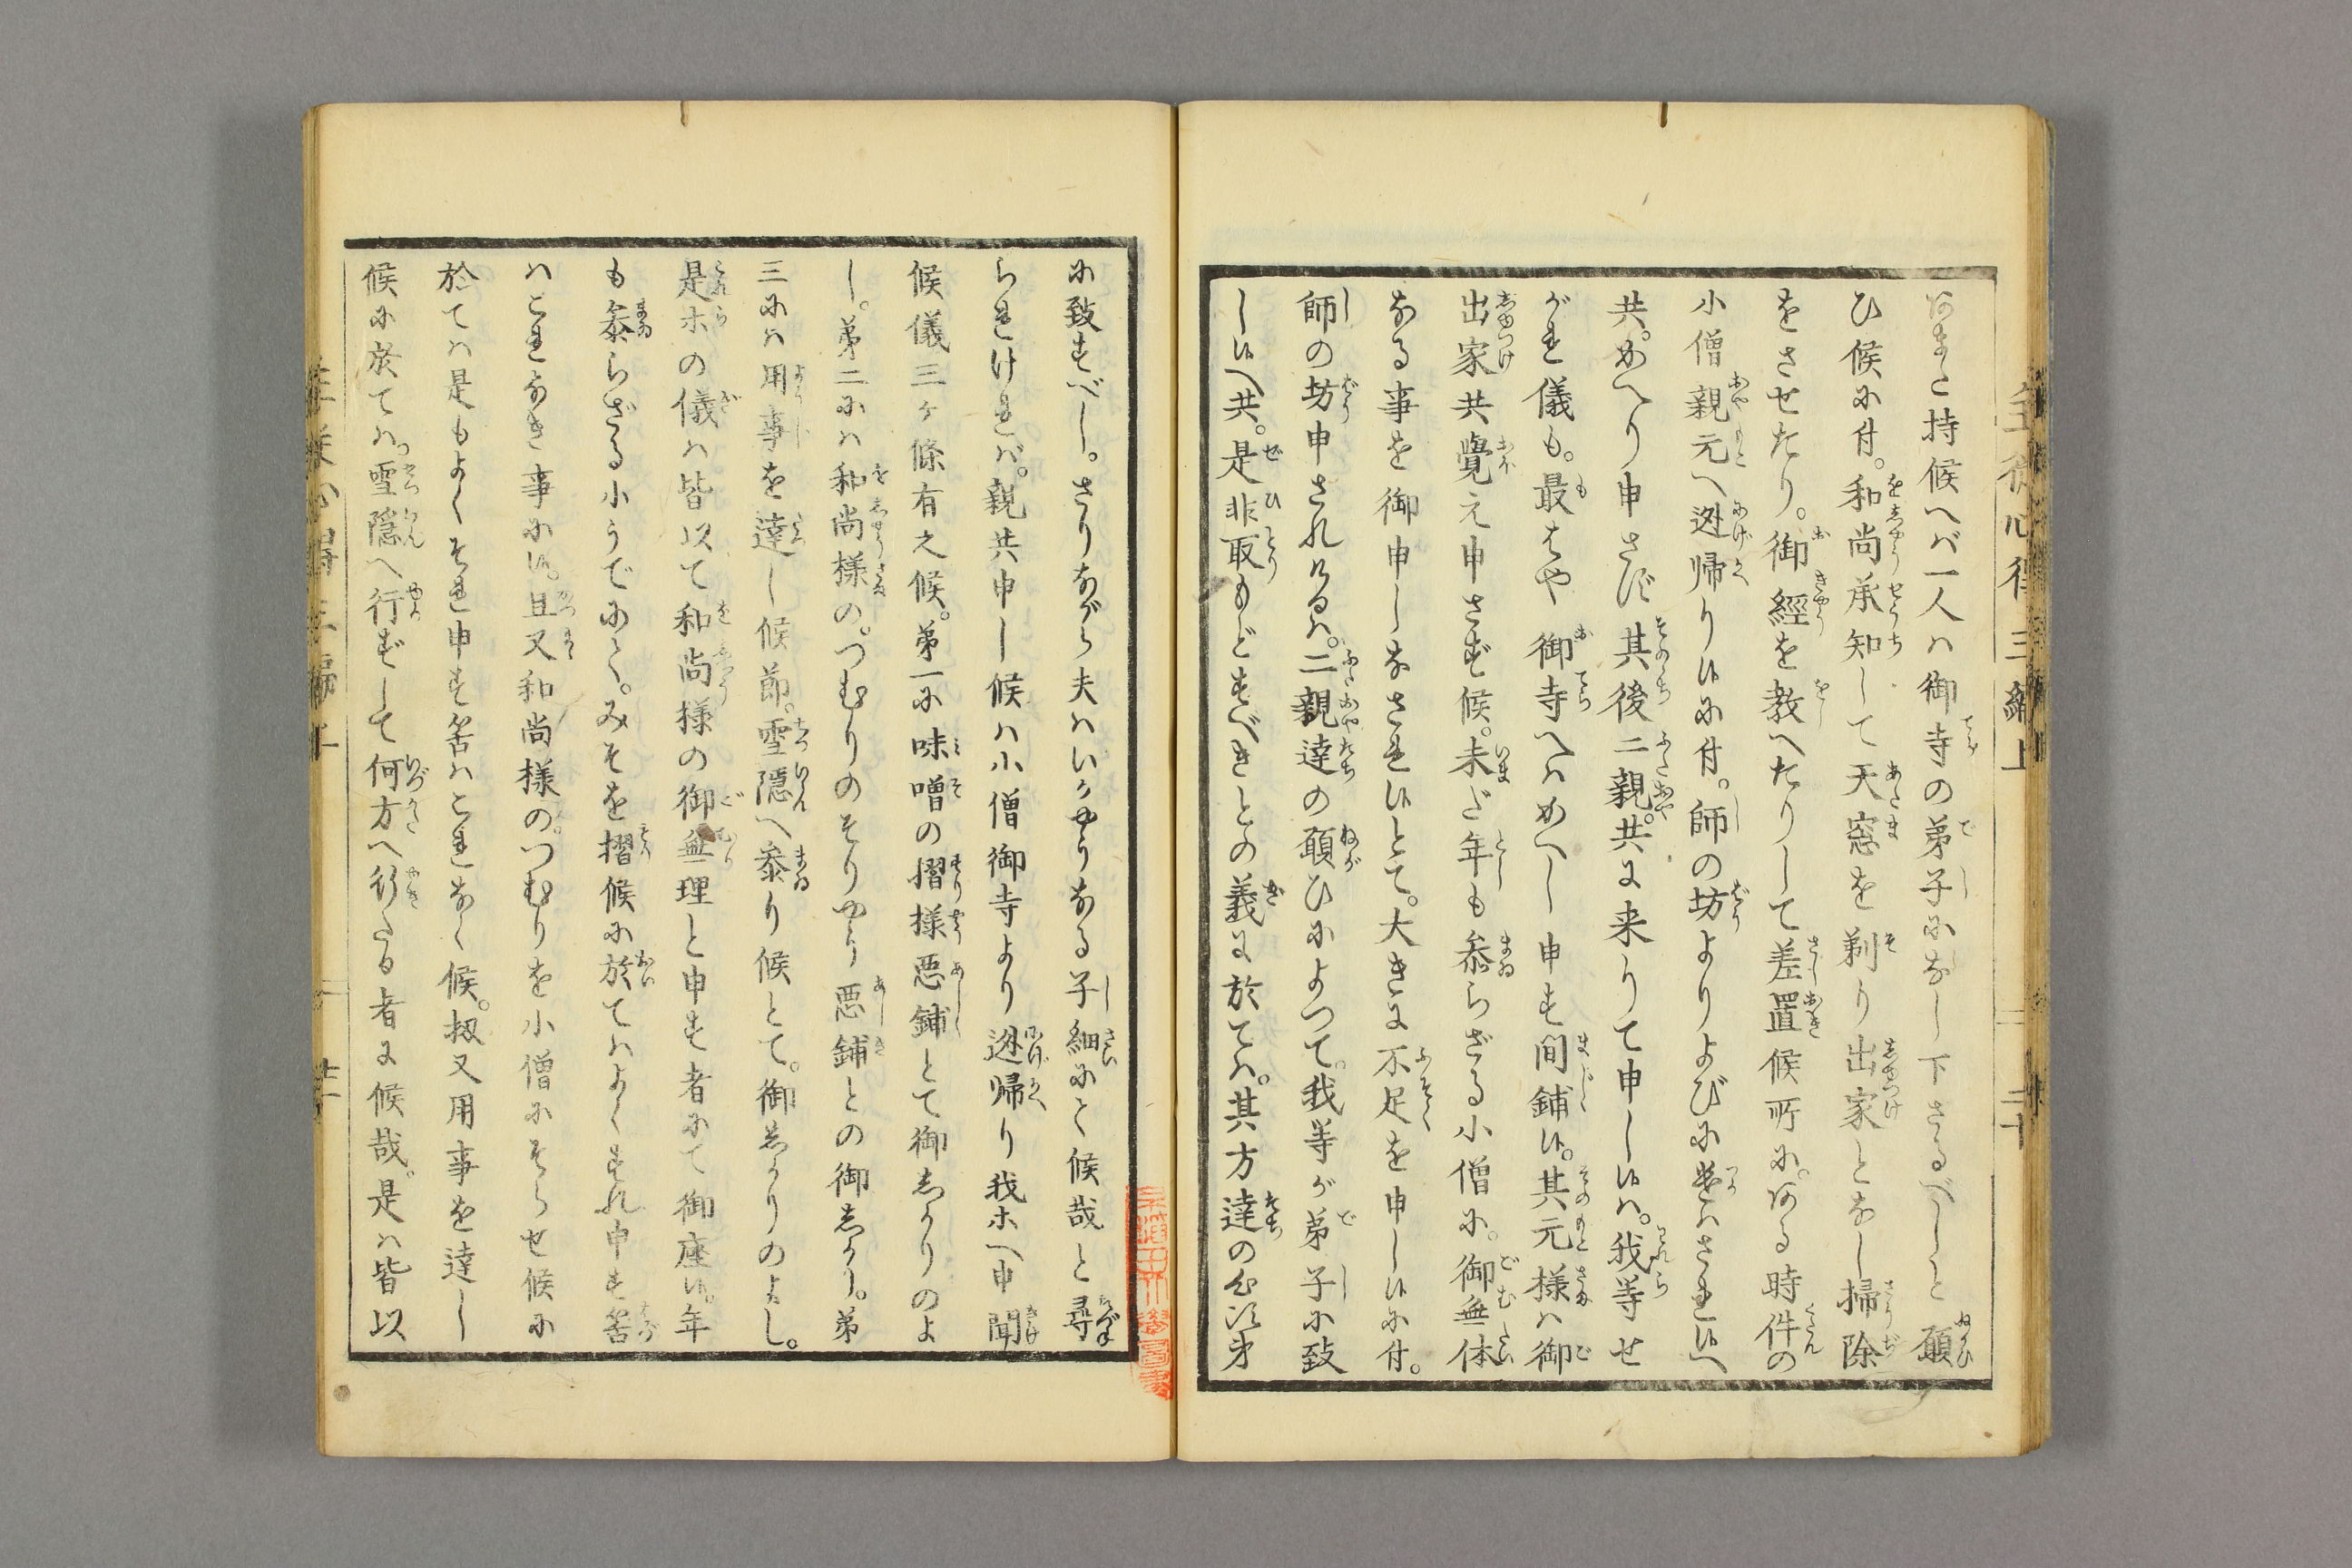 あまた持候へバ一人ハ御寺の弟子になし下さるべしと願
ひ候に付。和尚承知して天窓を剃り出家となし掃除
をさせたり。御經を教へたりして差置候所に。ある時件の
小僧親元へ迯帰り候に付。師の坊よりよびに遣ハされ候へ
共。かへり申さず其後二親共に来りて申し候ハ。我等せ
がれ儀も。最はや御寺へハかへし申す間鋪候。其元様ハ御
出家共覺え申さず候。未だ年も参らざる小僧に。御無体
なる事を御申しなされ候とて。大きに不足を申し候に付。
師の坊申されけるハ。二親達の願ひによつて。我等が弟子に致
し候へ共。是非取もどすべきとの義に於てハ。其方達の心次第
に致すべし。さりながら夫ハいかやうなる子細にく候哉と尋
られけれバ。親共申し候ハ小僧御寺より迯帰り我ホへ申聞
候儀三ヶ條有之候。第一に味噌の摺様悪鋪とて御しかりのよ
し。第二にハ和尚様の。つむりのそりやう悪鋪との御しかり。第
三にハ用事を達し候節。雪隠へ参り候とて。御しかりのよし。
是ホの儀ハ皆以て和尚様の御無理と申す者にて御座候。年
も参らざる小うでにく。みそを摺候に於てハよくすれ申す筈
ハこれなき事に候。且又和尚様の。つむりを小僧にそらせ候に
於てハ是もよくそれ申す筈ハこれなく候。扨又用事を達し
候に於てハ。雪隠へ行ずして何方へ行たる者に候哉。是ハ皆以